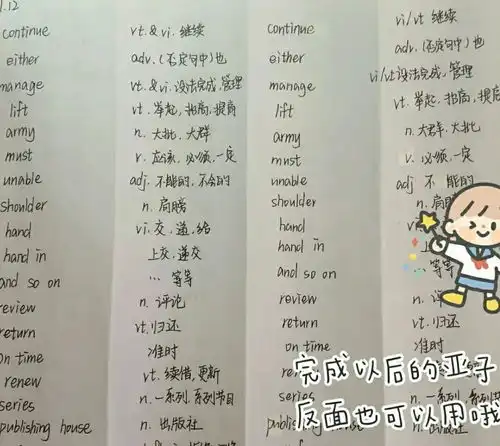 1.12
continue vt.&vi. 继续 continue vi/vt 继续
either adv.(否定句中)也 either adv.(否定句中)也
manage vt.&vi.设法完成,管理 manage vi/vt设法完成,管理
lift vt.举起,抬高,提高 lift vt.举起,抬高,提高
army n.大批,大群 army n.大群,大批
must v.应该,必须,一定 must v.必须,一定
unable adj.不能的,不会的 unable adj 不能的
shoulder n.肩膀 shoulder n.肩
hand vt.交,递,给 hand
hand in 上交,递交 hand in 上
and so on …等等 and so on …等等
review n.评论 review n.评
return vt.归还 return vt.归还
on time 准时 on time 准时
renew vt.续借,更新
series n.一系列,系列节目 series n.一系列,系列节目
publishing house n.出版社
完成以后的亚子
反面也可以用哦